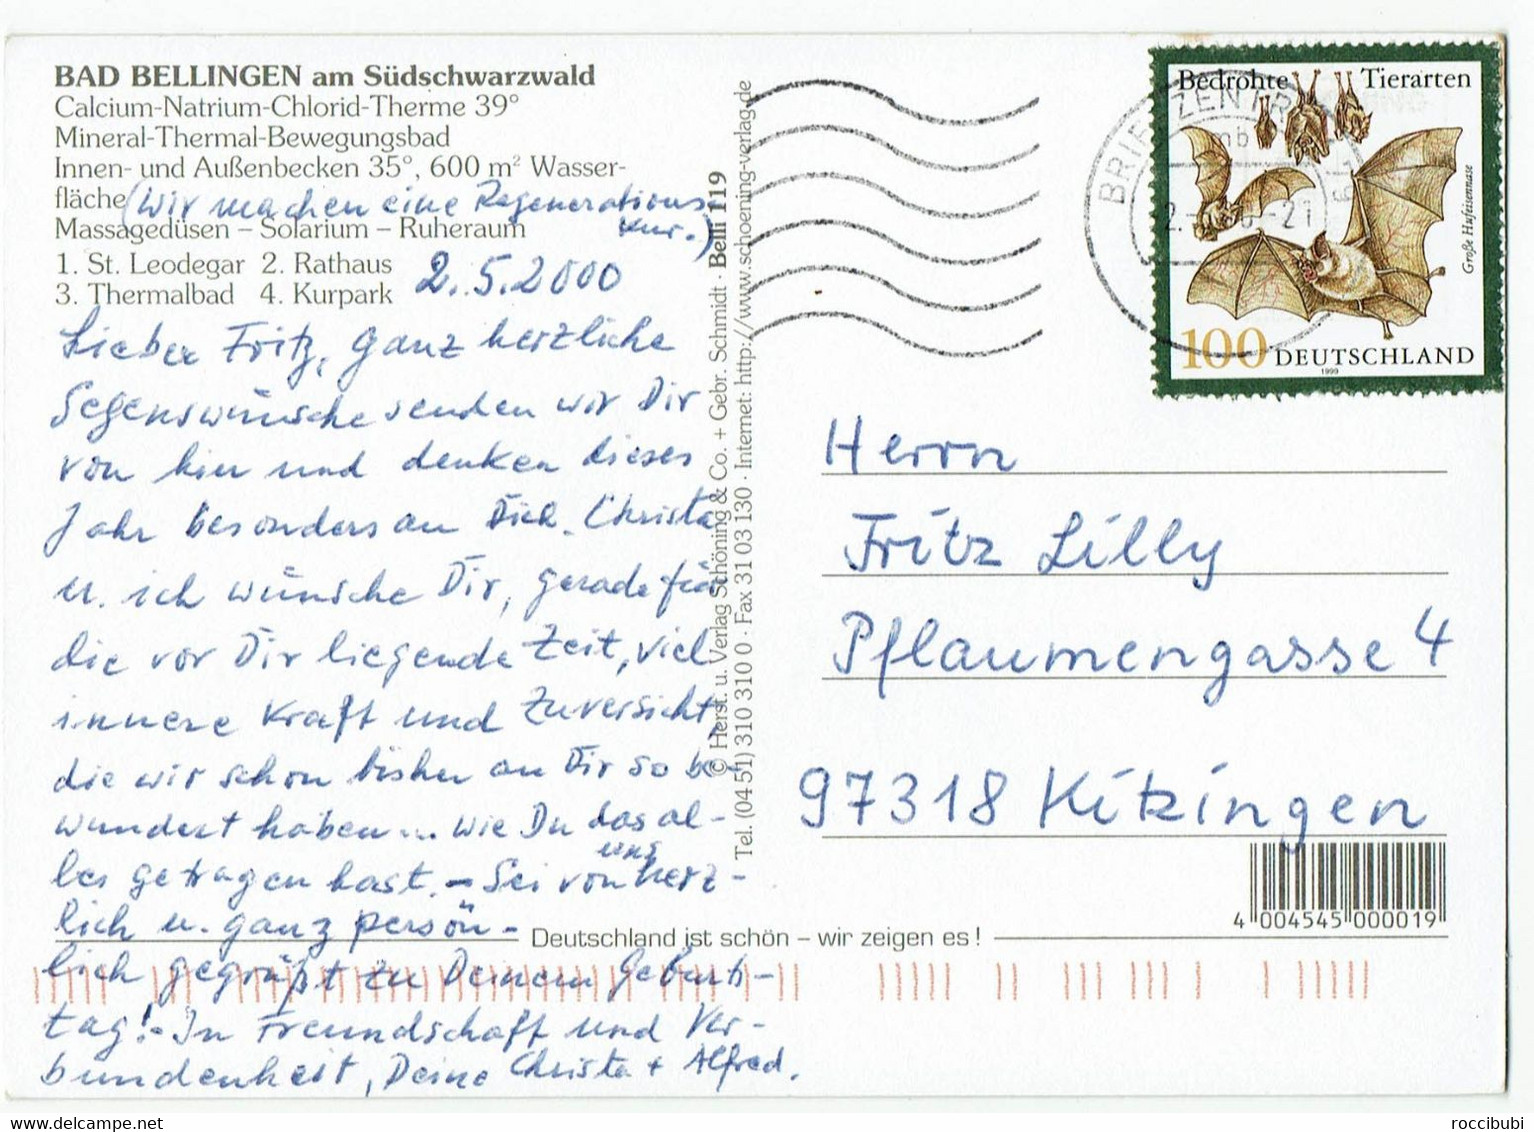 BAD BELLINGEN am Südschwarzwald
Calcium-Natrium-Chlorid-Therme 39°
Mineral-Thermal-Bewegungsbad
Innen- und Außenbecken 35°, 600 m² Wasser-
fläche (Wir machen eine Regenerations
Massagedüsen – Solarium – Ruheraum Kur.)
1. St. Leodegar 2. Rathaus
3. Thermalbad 4. Kurpark
2.5.2000
Lieber Fritz, ganz herzliche
Segenswünsche senden wir Dir
von hier und denken dieses
Jahr besonders an Dich. Christa
u. ich wünsche Dir, gerade für
die vor Dir liegende Zeit, viel
innere Kraft und Zuversicht,
die wir schon bisher an Dir so be-
wundert haben... Wie Du das al-
les getragen hast. – Sei von uns herz-
lich u. ganz persön-
lich gegrüßt zu Deinem Geburts-
tag! – In Freundschaft und Ver-
bundenheit, Deine Christa + Alfred.
© Herst. u. Verlag Schöning & Co. + Gebr. Schmidt · Belli 119
Tel. (04 51) 310 310 0 · Fax 31 03 130 · Internet: http://www.schoening-verlag.de
Deutschland ist schön – wir zeigen es!
BRIEFZENTR
-21
Bedrohte Tierarten
Große Hufeisennase
100 DEUTSCHLAND
1999
Herrn
Fritz Lilly
Pflaumengasse 4
97318 Kitzingen
4 004545 000019
delcampe.net
roccibubi